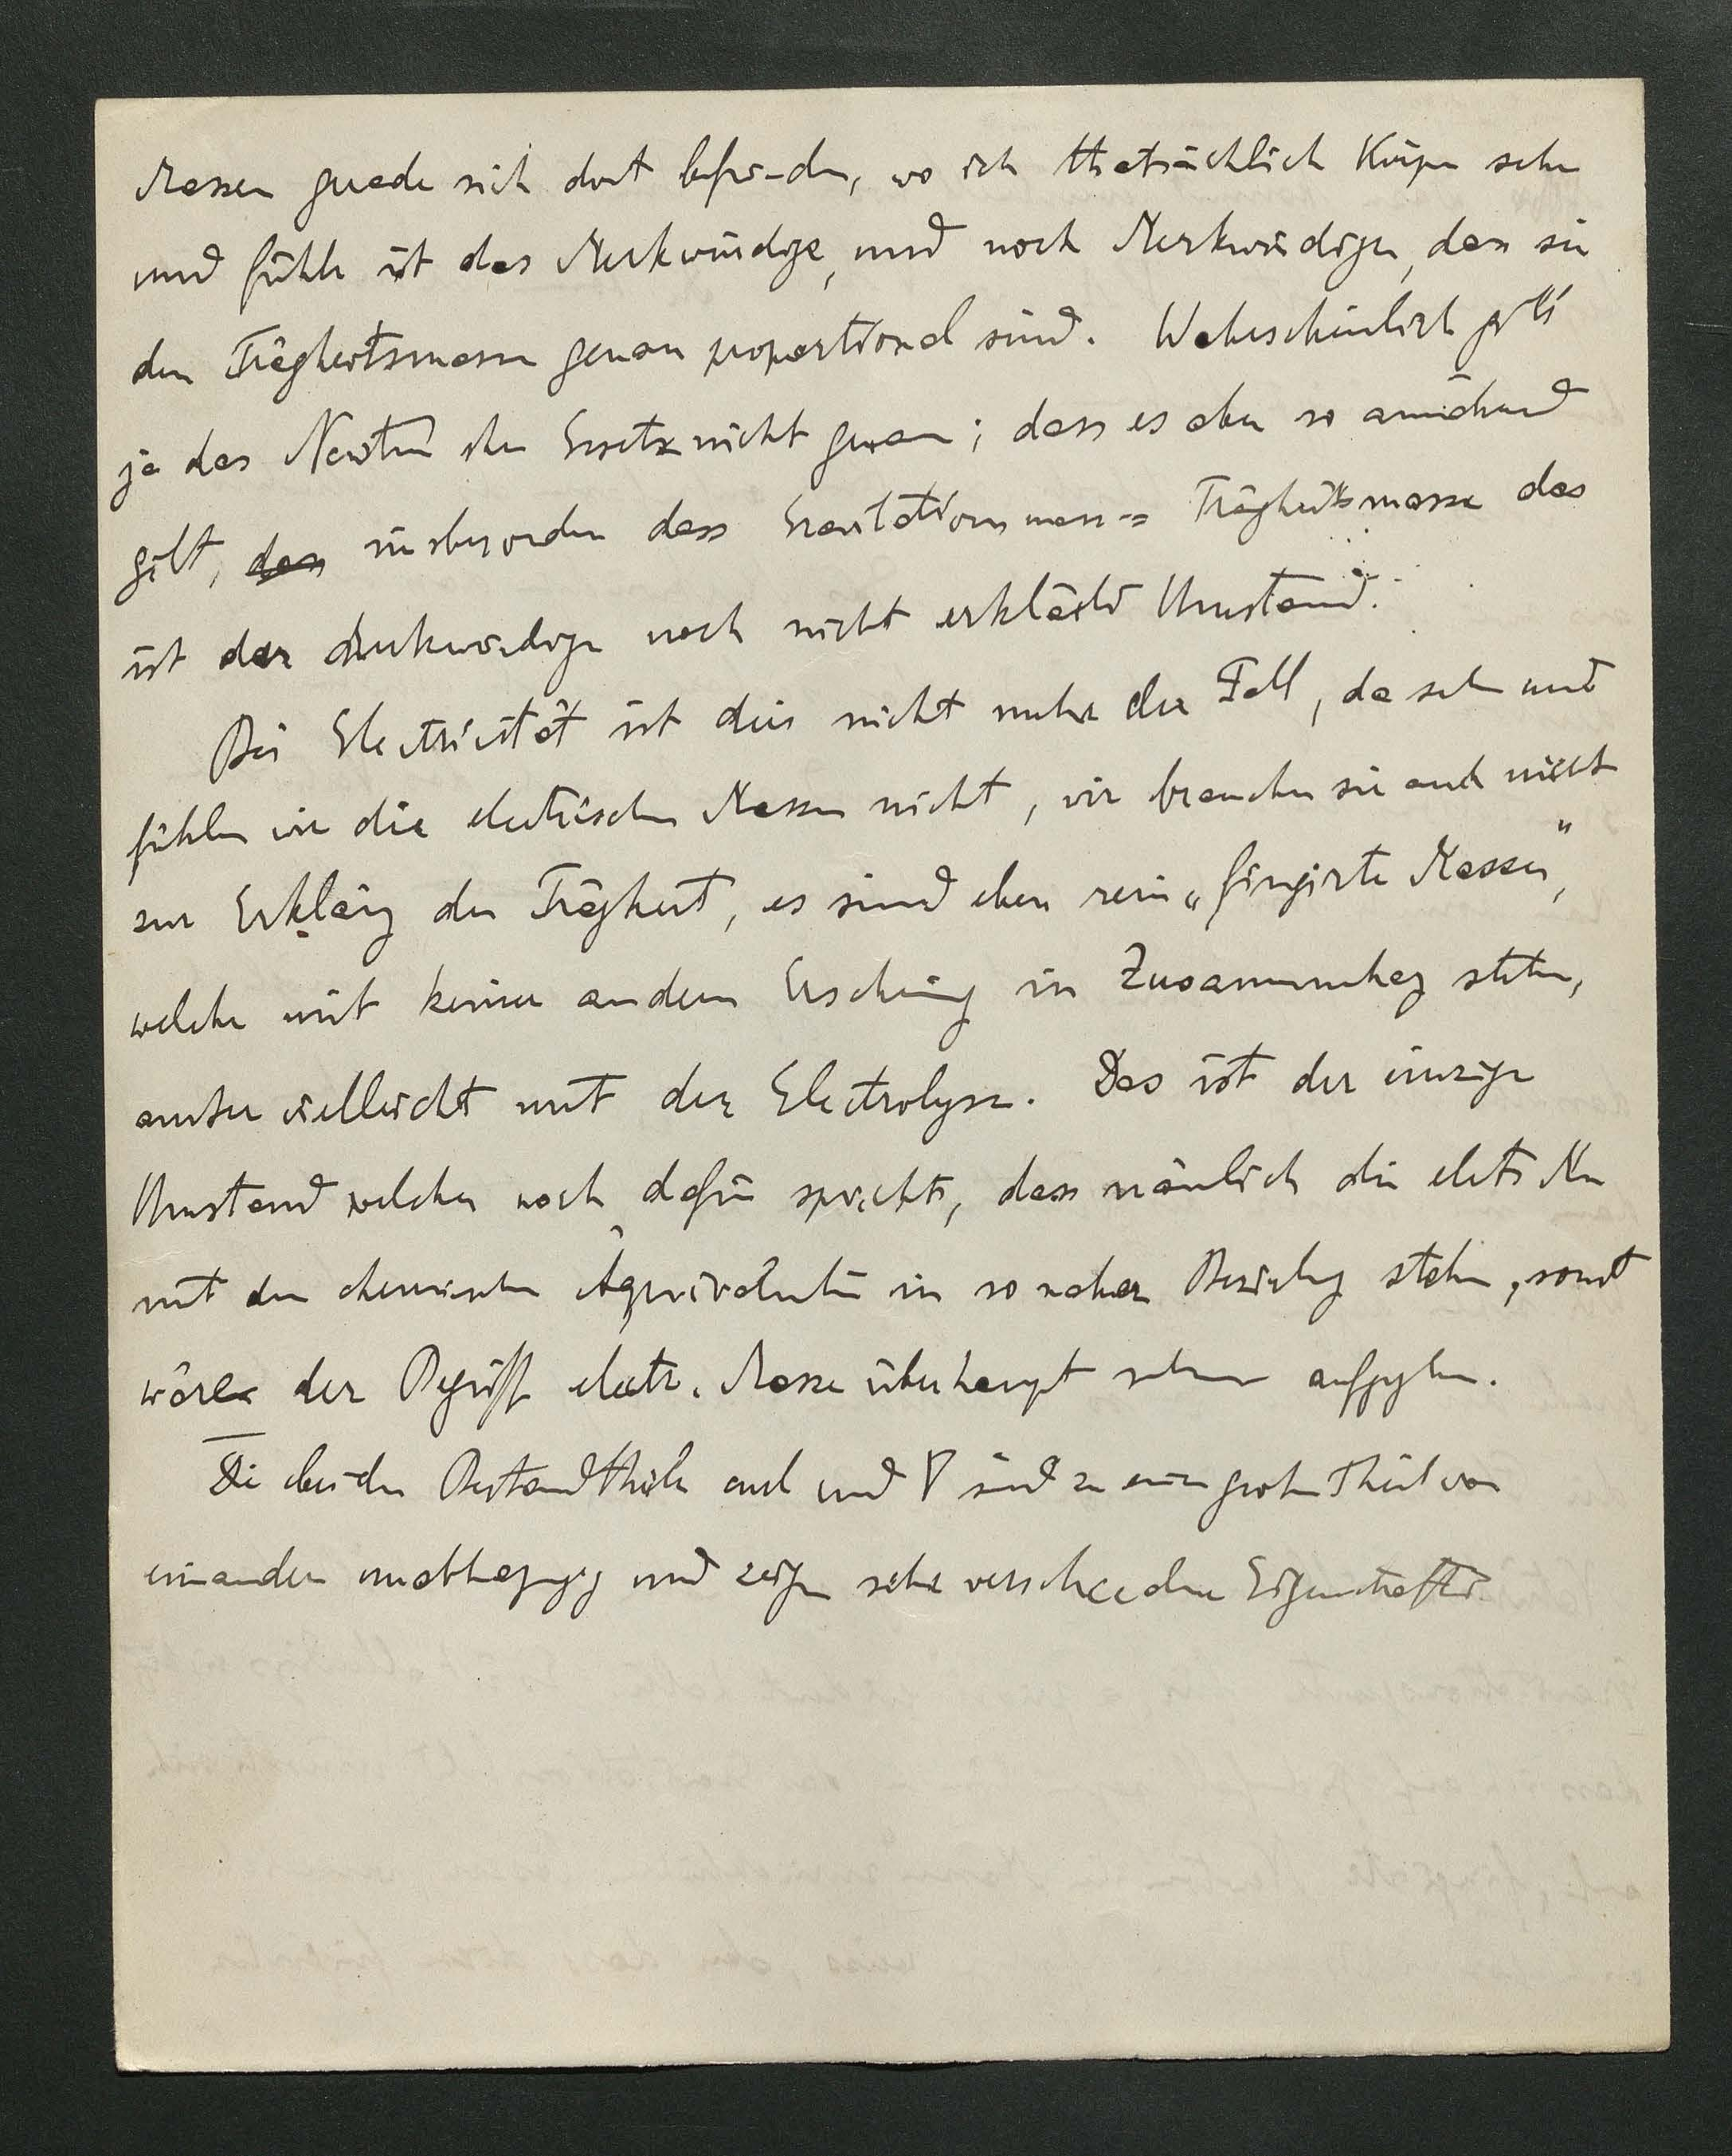 Massen gerade sich dort befinden, wo ich thatsächlich Körper sehe
und fühle ist das Merkwürdige, und noch Merkwürdiger, dass sie
den Trägheitsmassen genau proportional sind. Wahrscheinlich gilt
ja das Newton'sche Gesetz nicht genau; dass es aber so annähernd
gilt, dass insbesondere dass Gravitationsmasse = Trägheitsmasse das
ist der merkwürdige noch nicht erklärte Umstand.
Bei Electricität ist dies nicht mehr der Fall, da sehen und
fühlen wir die electrischen Massen nicht, wir brauchen sie auch nicht
zur Erklärung der Trägheit, es sind eben rein „fingirte Massen",
welche mit keiner andern Erscheinung in Zusammenhang stehen,
ausser vielleicht mit der Electrolyse. Das ist der einzige
Umstand welcher noch dafür spricht, dass nämlich die electr
mit den chemischen Äquivalenten in so naher Beziehung stehen, sonst
wäre der Begriff electr. Masse überhaupt aufzugeben.
Die beiden Bestandtheile und V sind zu einem grossen Theil von
einander unabhängig und zeigen sehr verschiedene Eigenschaften.